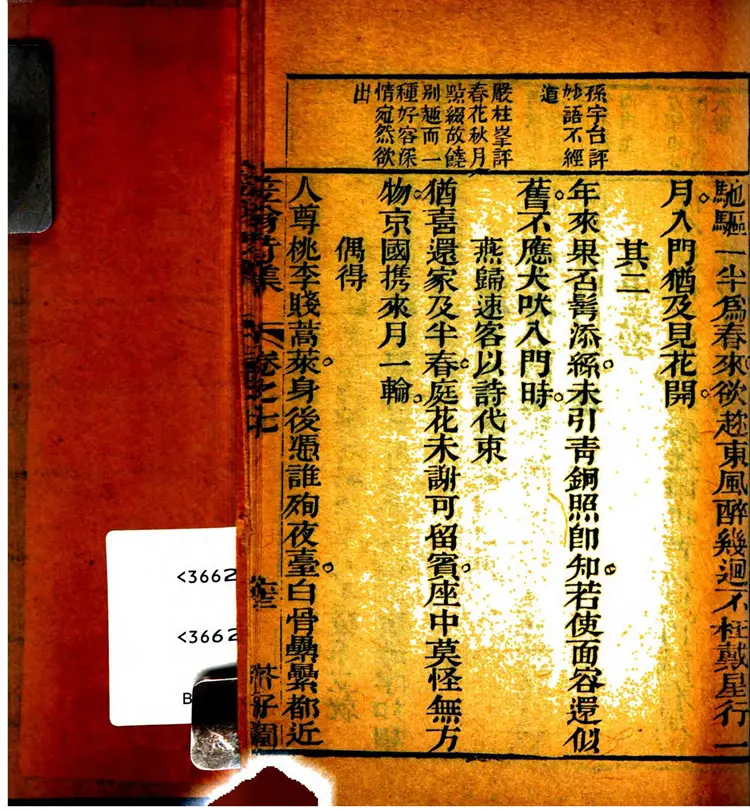 孫宇台評
妙語不經
道
嚴柱峯評
春花秋月
點綴故饒
别趣而一
種好容深
情宛然欲
出
馳驅一半爲春來欲趂東風醉幾迴不枉戴星行一
月入門猶及見花開
其二
年來果否鬂添絲未引青銅照卽知若使面容還似
舊不應犬吠入門時
燕歸速客以詩代柬
猶喜還家及半春庭花未謝可留賓座中莫怪無方
物京國携來月一輪
偶得
人尊桃李賤蒿萊身後憑誰殉夜臺白骨纍纍都近
卷之七
芥子園
<3662
<3662
B